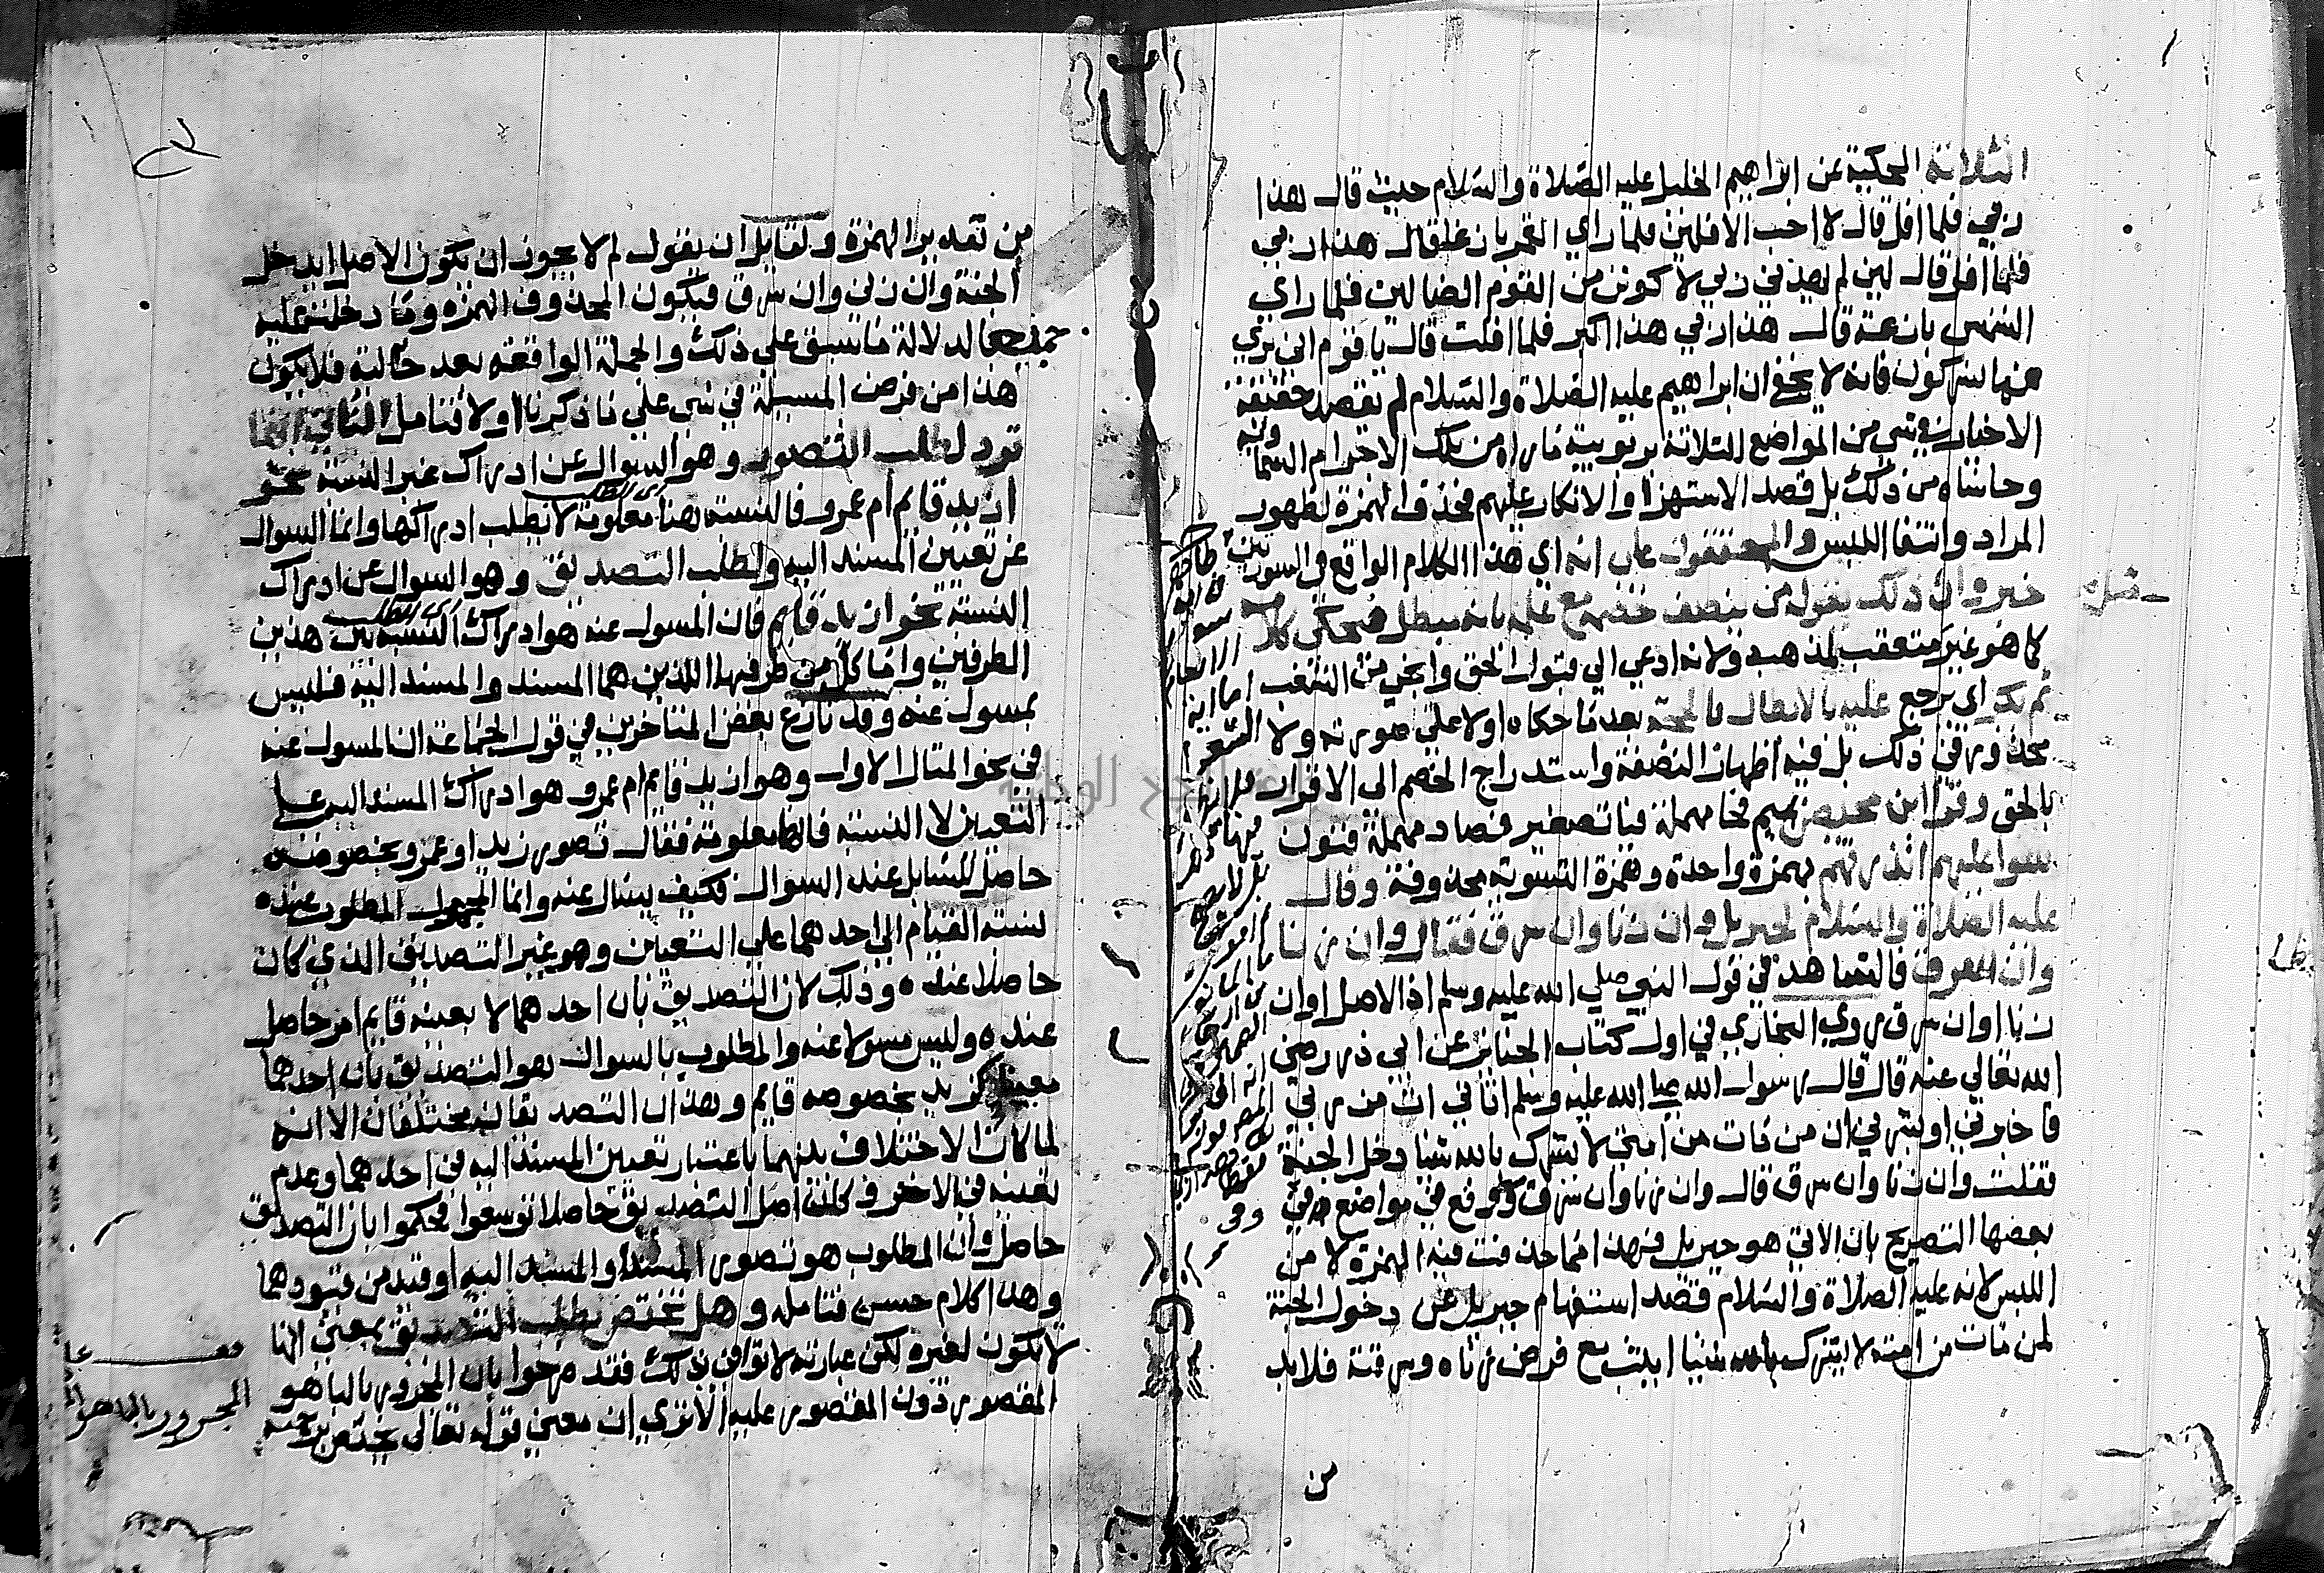 الثلاثة المحكية عن ابراهيم الخليل عليه الصلاة والسلام حيث قال هذا
ربي فلما افل قال لا احب الافلين فلما راي القمر بازغا قال هذا ربي
فلما افل قال لين لم يهدني ربي لاكونن من القوم الضالين فلما راي
الشمس بازغة قال هذا ربي هذا اكبر فلما افلت قال يا قوم اني بري
مما تشركون فانه لا يخفي ان ابراهيم عليه الصلاة والسلام لم يقصد حقيقة
الاخبار في شي من المواضع الثلاثة بربوبية ما راه من تلك الاجرام السماوية
وحاشاه من ذلك بل قصد الاستهزا والانكار عليهم فحذف الهمزة لظهور
المراد وانتفا اللبس والمحققون علي انه اي هذا الكلام الواقع في السورتين
خبر وان ذلك يقوله من ينصف خصمه مع علمه بانه مبطل فيحكي كلامه
كما هو غير متعقب لمذهبه ولانه ادعي الي قبول الحق وانجي من الشغب
ثم يكر اي يرجع عليه بالابطال بالحجة بعد ما حكاه اولا علي صورته ولا
محذور في ذلك بل فيه اظهار النصفة واستدراج الخصم الي الاقرار
بالحق وقرا ابن محيصن بميم فحا مهملة فيا تصغير فصاد مهملة فنون
سوا عليهم انذرتهم بهمزة واحدة وهمزة التسوية محذوفة وقال
عليه الصلاة والسلام لجبريل وان زنا وان سرق فقال وان زنا
وان سرق فالشاهد في قول النبي صلي الله عليه وسلم اذ الاصل اوان
زنا اوان سرق روي البخاري في اول كتاب الجنايز عن ابي ذر رضي
الله تعالي عنه قال قال رسول الله صلي الله عليه وسلم اتاني ات من ربي
فاخبرني او بشرني ان من مات من امتي لا يشرك بالله شيا دخل الجنة
فقلت وان زنا وان سرق قال وان زنا وان سرق ووقع في مواضع وفي
بعضها التصريح بان الاتي هو جبريل فهذا مما حذفت فيه الهمزة لا من
اللبس لانه عليه الصلاة والسلام قصد استفهام جبريل عن دخول الجنة
لمن مات من امته لا يشرك بالله شيا ايثبت مع فرض زناه وسرقته فلا بد
من
من تقدير الهمزة ولقايل ان يقول لم لا يجوز ان يكون الاصل ايدخل
الجنة وان زني وان سرق فيكون المحذوف الهمزة وما دخلت عليه
جميعا لدلالة ما سبق علي ذلك والجملة الواقعة بعد حالية فلا يكون
هذا من فرض المسيلة في شي علي ما ذكرنا اولا فتامل الثاني انها
ترد لطلب التصور وهو السوال عن ادراك غير النسبة نحو
ازيد قايم ام عمرو فالنسبة هنا معلومة لا يطلب ادراكها وانما السوال
عن تعيين المسند اليه ولطلب التصديق وهو السوال عن ادراك
النسبة نحو ازيد قايم فان المسول عنه هو ادراك النسبة بين هذين
الطرفين واما كل من طرفيها اللذين هما المسند والمسند اليه فليس
بمسول عنه وقد نازع بعض المتاخرين في قول الجماعة ان المسول عنه
في نحو المثال الاول وهو ازيد قايم ام عمرو هو ادراك المسند اليه علي
التعيين لا النسبة فانها معلومة فقال تصور زيد او عمرو بخصوصه
حاصل للسايل عند السوال فكيف يسال عنه وانما المجهول المطلوب عنده
نسبة القيام الي احدهما علي التعيين وهو غير التصديق الذي كان
حاصلا عنده وذلك لان التصديق بان احدهما لا بعينه قايم امر حاصل
عنده وليس مسولا عنه والمطلوب بالسوال هو التصديق بان احدهما
معينا كزيد بخصوصه قايم وهذان التصديقان مختلفان الا انه
لما كان الاختلاف بينهما باعتبار تعيين المسند اليه في احدهما وعدم
تعيينه في الاخر وكان اصل التصديق حاصلا توسعوا فحكموا بان التصديق
حاصل وان المطلوب هو تصور المسند او المسند اليه او قيد من قيودهما
وهذا كلام حسن فتامله وهل تختص بطلب التصديق بمعني انها
لا تكون لغيره لكن عبارته لا توافق ذلك فقد صرحوا بان المجرور بالبا هو
المقصور دون المقصور عليه الا تري ان معني قوله تعالي يختص برحمته